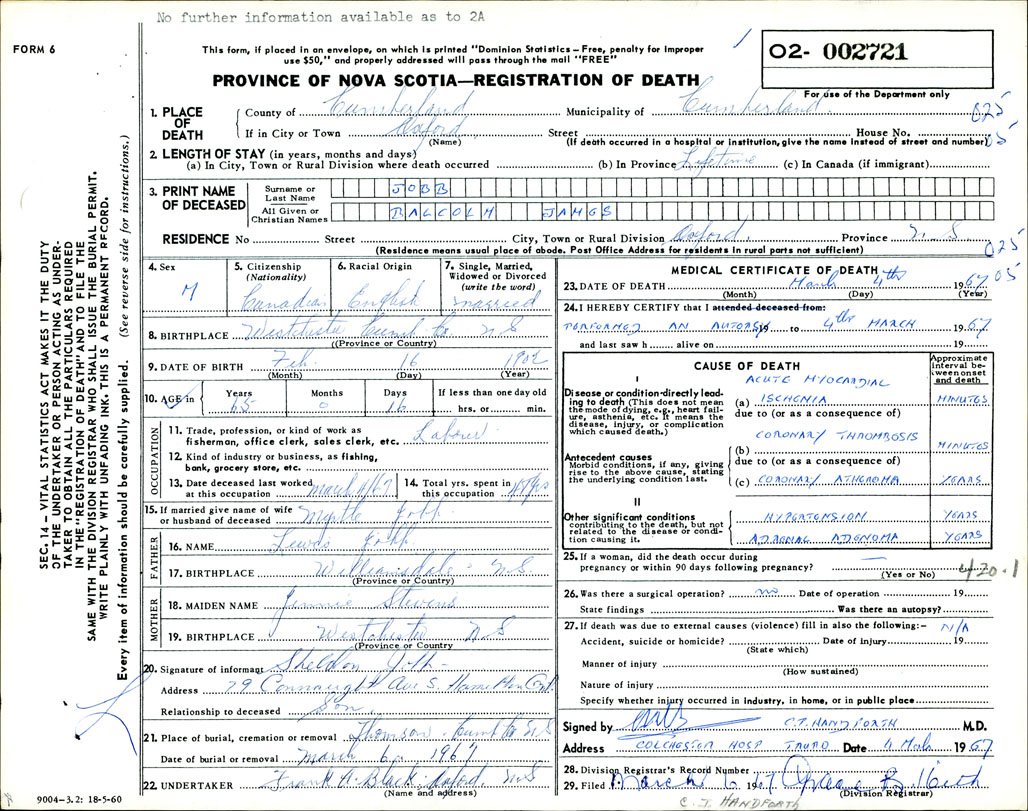 No further information available as to 2A
FORM 6
This form, if placed in an envelope, on which is printed "Dominion Statistics – Free, penalty for improper
use $50," and properly addressed will pass through the mail "FREE"
02- 002721
PROVINCE OF NOVA SCOTIA—REGISTRATION OF DEATH
For use of the Department only
SEC. 14 – VITAL STATISTICS ACT MAKES IT THE DUTY
OF THE UNDERTAKER OR PERSON ACTING AS UNDER-
TAKER TO OBTAIN ALL THE PARTICULARS REQUIRED
IN THE "REGISTRATION OF DEATH" AND TO FILE THE
SAME WITH THE DIVISION REGISTRAR WHO SHALL ISSUE THE BURIAL PERMIT.
WRITE PLAINLY WITH UNFADING INK. THIS IS A PERMANENT RECORD.
Every item of information should be carefully supplied. (See reverse side for instructions.)
1. PLACE OF DEATH
County of Cumberland Municipality of Cumberland 025
If in City or Town Oxford Street House No. 05
(Name) (If death occurred in a hospital or institution, give the name instead of street and number)
2. LENGTH OF STAY (in years, months and days)
(a) In City, Town or Rural Division where death occurred (b) In Province Lifetime (c) In Canada (if immigrant)
3. PRINT NAME OF DECEASED
Surname or Last Name JOBB
All Given or Christian Names BALCOLM JAMES
RESIDENCE No Street City, Town or Rural Division Oxford Province N.S 025
(Residence means usual place of abode. Post Office Address for residents in rural parts not sufficient) 05
4. Sex M
5. Citizenship (Nationality) Canadian
6. Racial Origin English
7. Single, Married, Widowed or Divorced (write the word) married
8. BIRTHPLACE Westchester Cumb. Co. N S
(Province or Country)
9. DATE OF BIRTH Feb. 16 1902
(Month) (Day) (Year)
10. AGE in Years 65 Months 0 Days 16 If less than one day old hrs. or min.
OCCUPATION
11. Trade, profession, or kind of work as
fisherman, office clerk, sales clerk, etc. Labour
12. Kind of industry or business, as fishing,
bank, grocery store, etc.
13. Date deceased last worked at this occupation march 4/67
14. Total yrs. spent in this occupation
15. If married give name of wife
or husband of deceased Myrtle Jobb
FATHER
16. NAME Lewis Jobb
17. BIRTHPLACE Williamsdale N S
(Province or Country)
MOTHER
18. MAIDEN NAME Jennie Stevens
19. BIRTHPLACE Westchester N S
(Province or Country
20. Signature of informant Sheldon Jobb
Address 79 Connaught Ave S. Hamilton Ont.
Relationship to deceased Son
21. Place of burial, cremation or removal Thomson Cumb Co N S
Date of burial or removal march 6, 1967
22. UNDERTAKER Frank A. Black Oxford N S
(Name and address)
9004–3.2: 18-5-60
MEDICAL CERTIFICATE OF DEATH
23. DATE OF DEATH March 4th 1967
(Month) (Day) (Year)
24. I HEREBY CERTIFY that I attended deceased from:
PERFORMED AN AUTOPSY 19 to 4th MARCH 1967
and last saw h alive on 19
CAUSE OF DEATH
Approximate interval between onset and death
I
Disease or condition directly lead-
ing to death (This does not mean
the mode of dying, e.g., heart fail-
ure, asthenia, etc. It means the
disease, injury, or complication
which caused death.)
ACUTE MYOCARDIAL
(a) ISCHEMIA MINUTES
due to (or as a consequence of)
CORONARY THROMBOSIS
(b) MINUTES
Antecedent causes
Morbid conditions, if any, giving
rise to the above cause, stating
the underlying condition last.
due to (or as a consequence of)
(c) CORONARY ATHEROMA YEARS
II
Other significant conditions
contributing to the death, but not
related to the disease or condi-
tion causing it.
HYPERTENSION YEARS
ADRENAL ADENOMA YEARS
25. If a woman, did the death occur during
pregnancy or within 90 days following pregnancy? —
(Yes or No) 420.1
26. Was there a surgical operation? no Date of operation 19
State findings Was there an autopsy?
27. If death was due to external causes (violence) fill in also the following:– N/A
Accident, suicide or homicide? Date of injury 19
(State which)
Manner of injury
(How sustained)
Nature of injury
Specify whether injury occurred in Industry, in home, or in public place
Signed by C.J. HANDFORTH M.D.
Address COLCHESTER HOSP TRURO Date 4 March 1967
28. Division Registrar's Record Number
29. Filed March 6 1967
(Division Registrar)
C. J. HANDFORTH